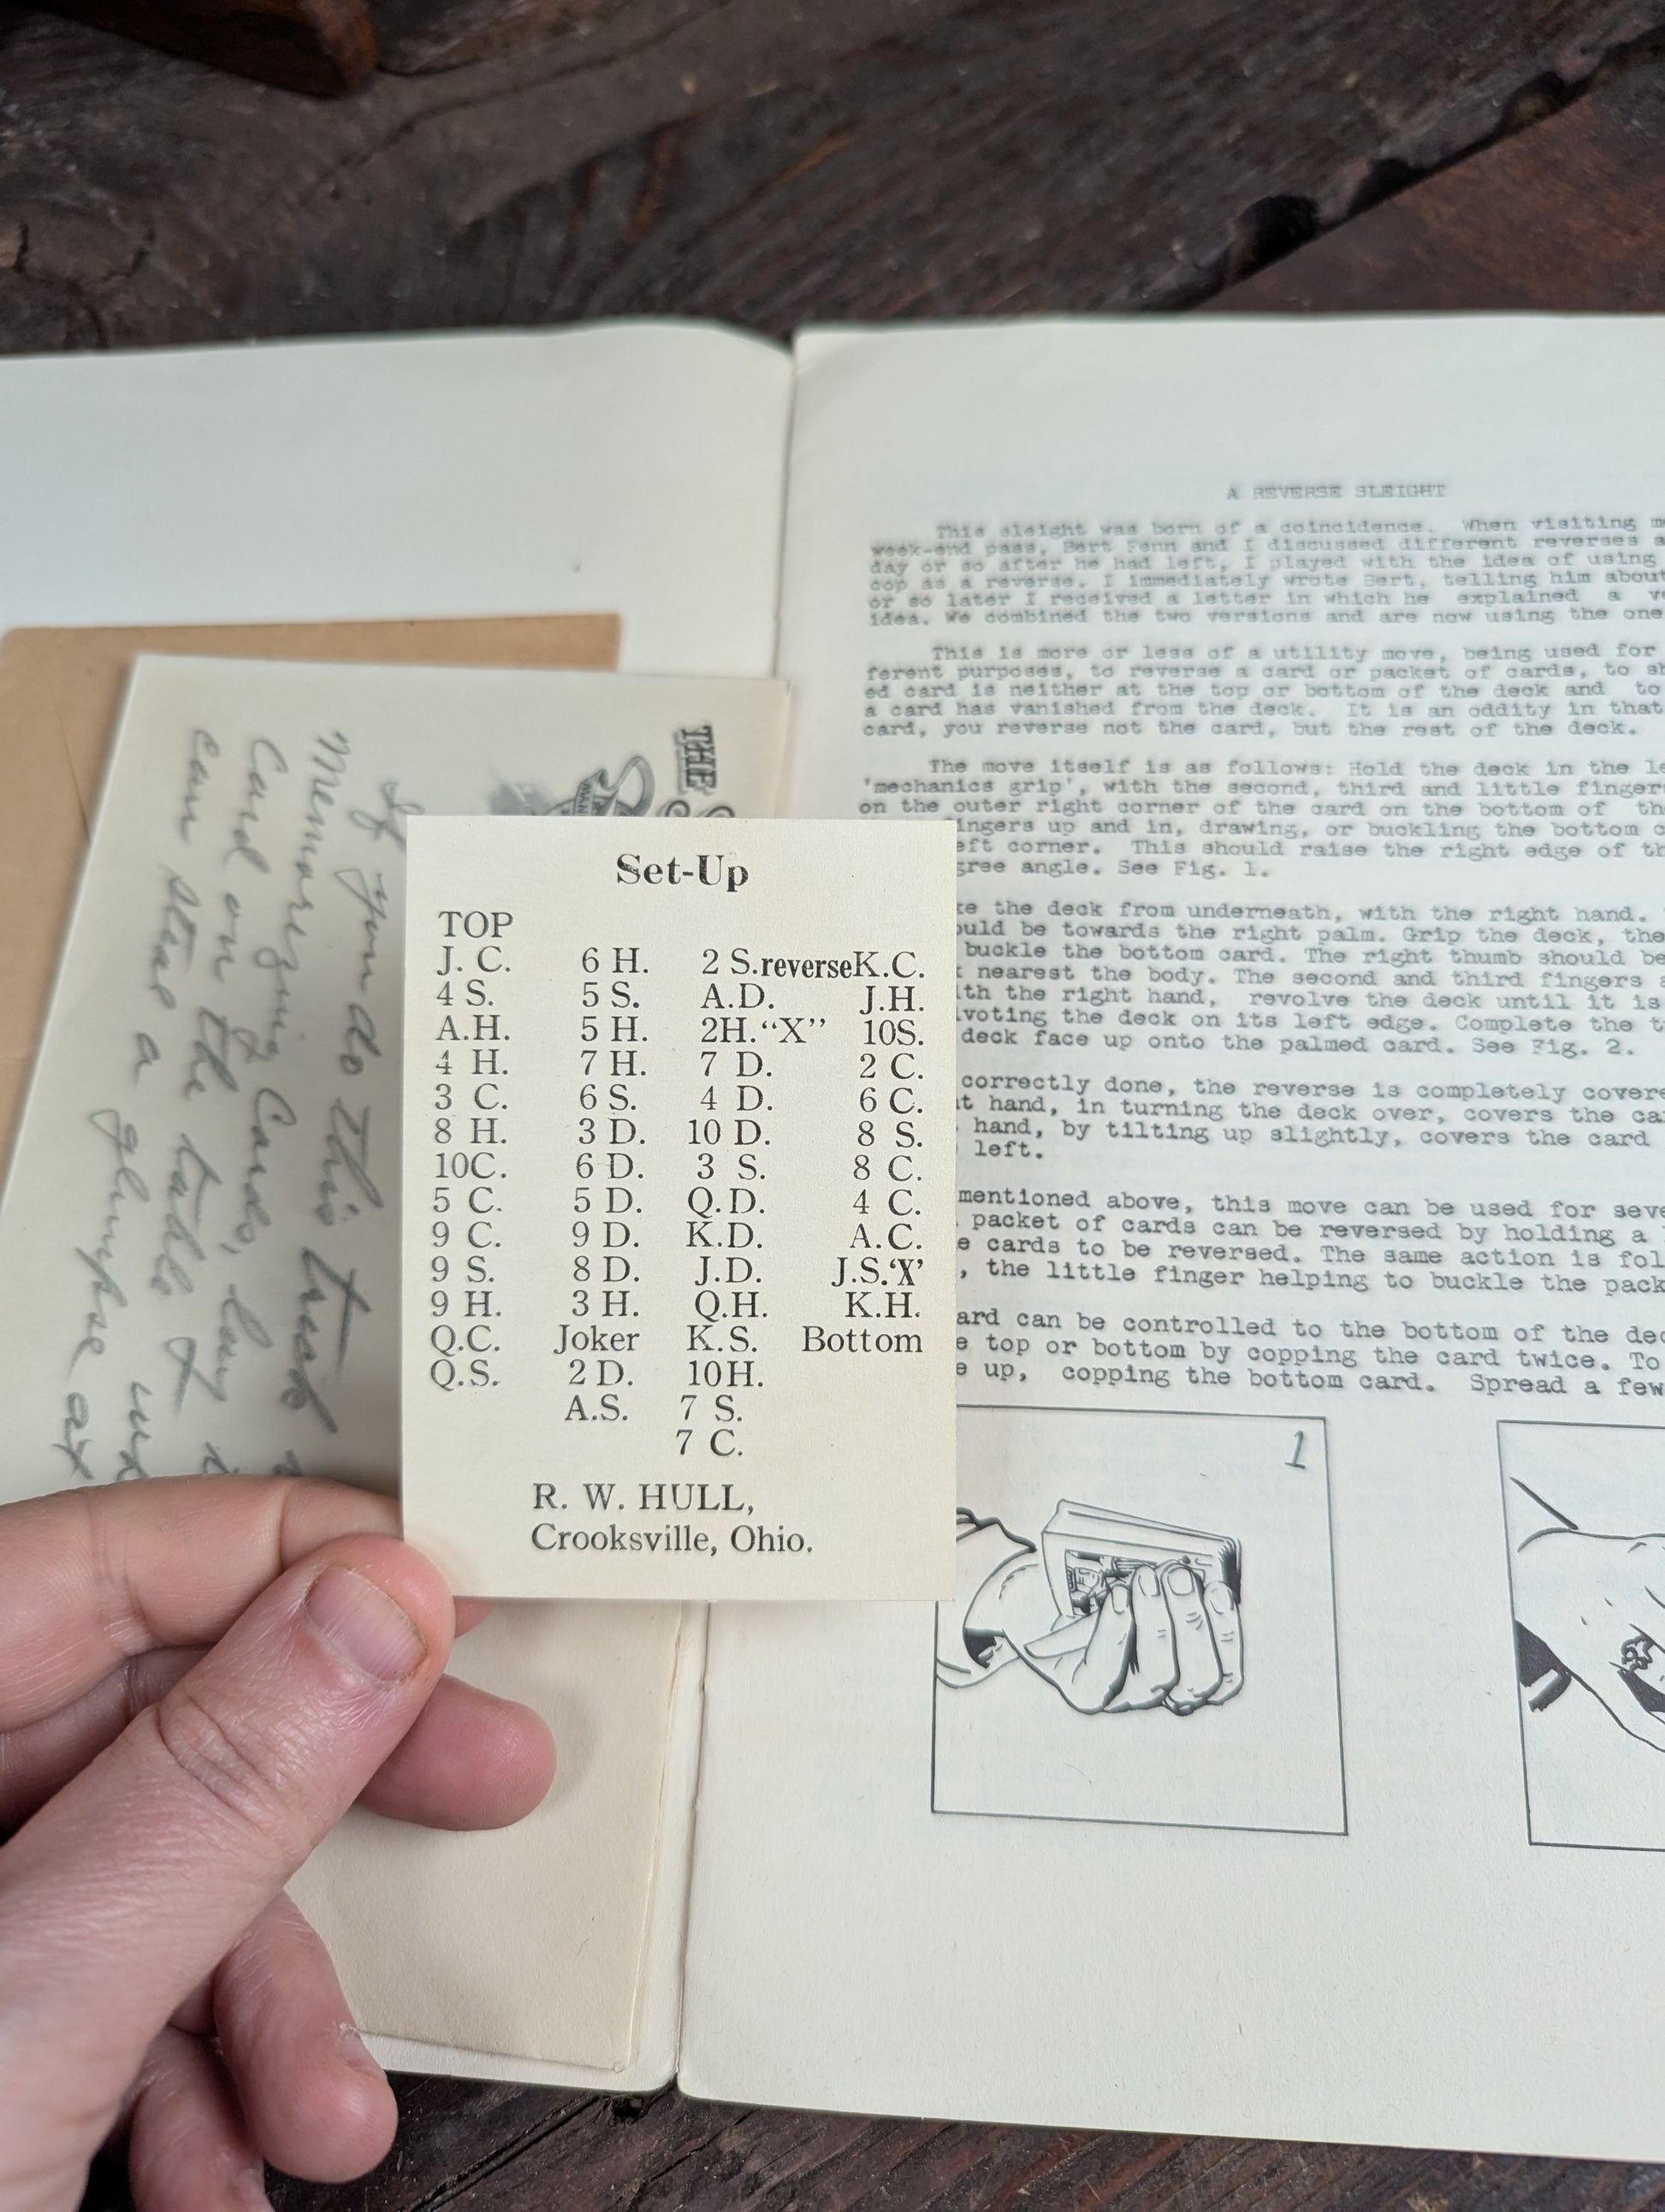 Set-Up
TOP
J. C. 6 H. 2 S.reverse K.C.
4 S. 5 S. A.D. J.H.
A.H. 5 H. 2H. “X” 10S.
4 H. 7 H. 7 D. 2 C.
3 C. 6 S. 4 D. 6 C.
8 H. 3 D. 10 D. 8 S.
10C. 6 D. 3 S. 8 C.
5 C. 5 D. Q.D. 4 C.
9 C. 9 D. K.D. A.C.
9 S. 8 D. J.D. J.S.‘X’
9 H. 3 H. Q.H. K.H.
Q.C. Joker K.S. Bottom
Q.S. 2 D. 10H.
A.S. 7 S.
7 C.
R. W. HULL,
Crooksville, Ohio.
THE
MAN
If you do this trick
Memorizing Cards, lay
Card on the table &
can steal a glimpse at
A REVERSE SLEIGHT
This sleight was born of a coincidence. When visiting
week-end pass, Bert Fenn and I discussed different reverses
day or so after he had left, I played with the idea of using
cop as a reverse. I immediately wrote Bert, telling him about
or so later I received a letter in which he explained a
idea. We combined the two versions and are now using the one
This is more or less of a utility move, being used for
ferent purposes, to reverse a card or packet of cards, to
ed card is neither at the top or bottom of the deck and to
a card has vanished from the deck. It is an oddity in that
card, you reverse not the card, but the rest of the deck.
The move itself is as follows: Hold the deck in the
'mechanics grip', with the second, third and little finger
on the outer right corner of the card on the bottom of
ingers up and in, drawing, or buckling the bottom
eft corner. This should raise the right edge of
gree angle. See Fig. 1.
the deck from underneath, with the right hand.
ould be towards the right palm. Grip the deck,
buckle the bottom card. The right thumb should be
nearest the body. The second and third fingers
ith the right hand, revolve the deck until it is
ivoting the deck on its left edge. Complete the
deck face up onto the palmed card. See Fig. 2.
correctly done, the reverse is completely covere
t hand, in turning the deck over, covers the
hand, by tilting up slightly, covers the card
left.
mentioned above, this move can be used for
packet of cards can be reversed by holding a
e cards to be reversed. The same action is
, the little finger helping to buckle the
ard can be controlled to the bottom of the
e top or bottom by copping the card twice. To
e up, copping the bottom card. Spread a few
1